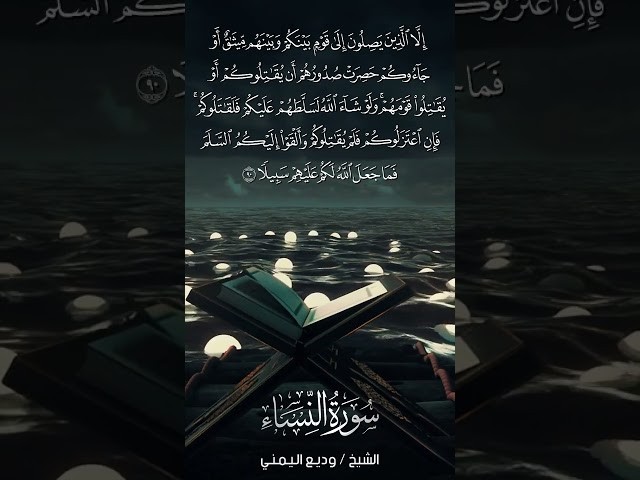 إِلَّا ٱلَّذِينَ يَصِلُونَ إِلَىٰ قَوْمِۭ بَيْنَكُمْ وَبَيْنَهُم مِّيثَٰقٌ أَوْ
جَآءُوكُمْ حَصِرَتْ صُدُورُهُمْ أَن يُقَٰتِلُوكُمْ أَوْ
يُقَٰتِلُوا۟ قَوْمَهُمْ ۚ وَلَوْ شَآءَ ٱللَّهُ لَسَلَّطَهُمْ عَلَيْكُمْ فَلَقَٰتَلُوكُمْ ۚ
فَإِنِ ٱعْتَزَلُوكُمْ فَلَمْ يُقَٰتِلُوكُمْ وَأَلْقَوْا۟ إِلَيْكُمُ ٱلسَّلَمَ
فَمَا جَعَلَ ٱللَّهُ لَكُمْ عَلَيْهِمْ سَبِيلًا ٩٠
سُورَةُ النِّسَاءِ
الشيخ / وديع اليمني